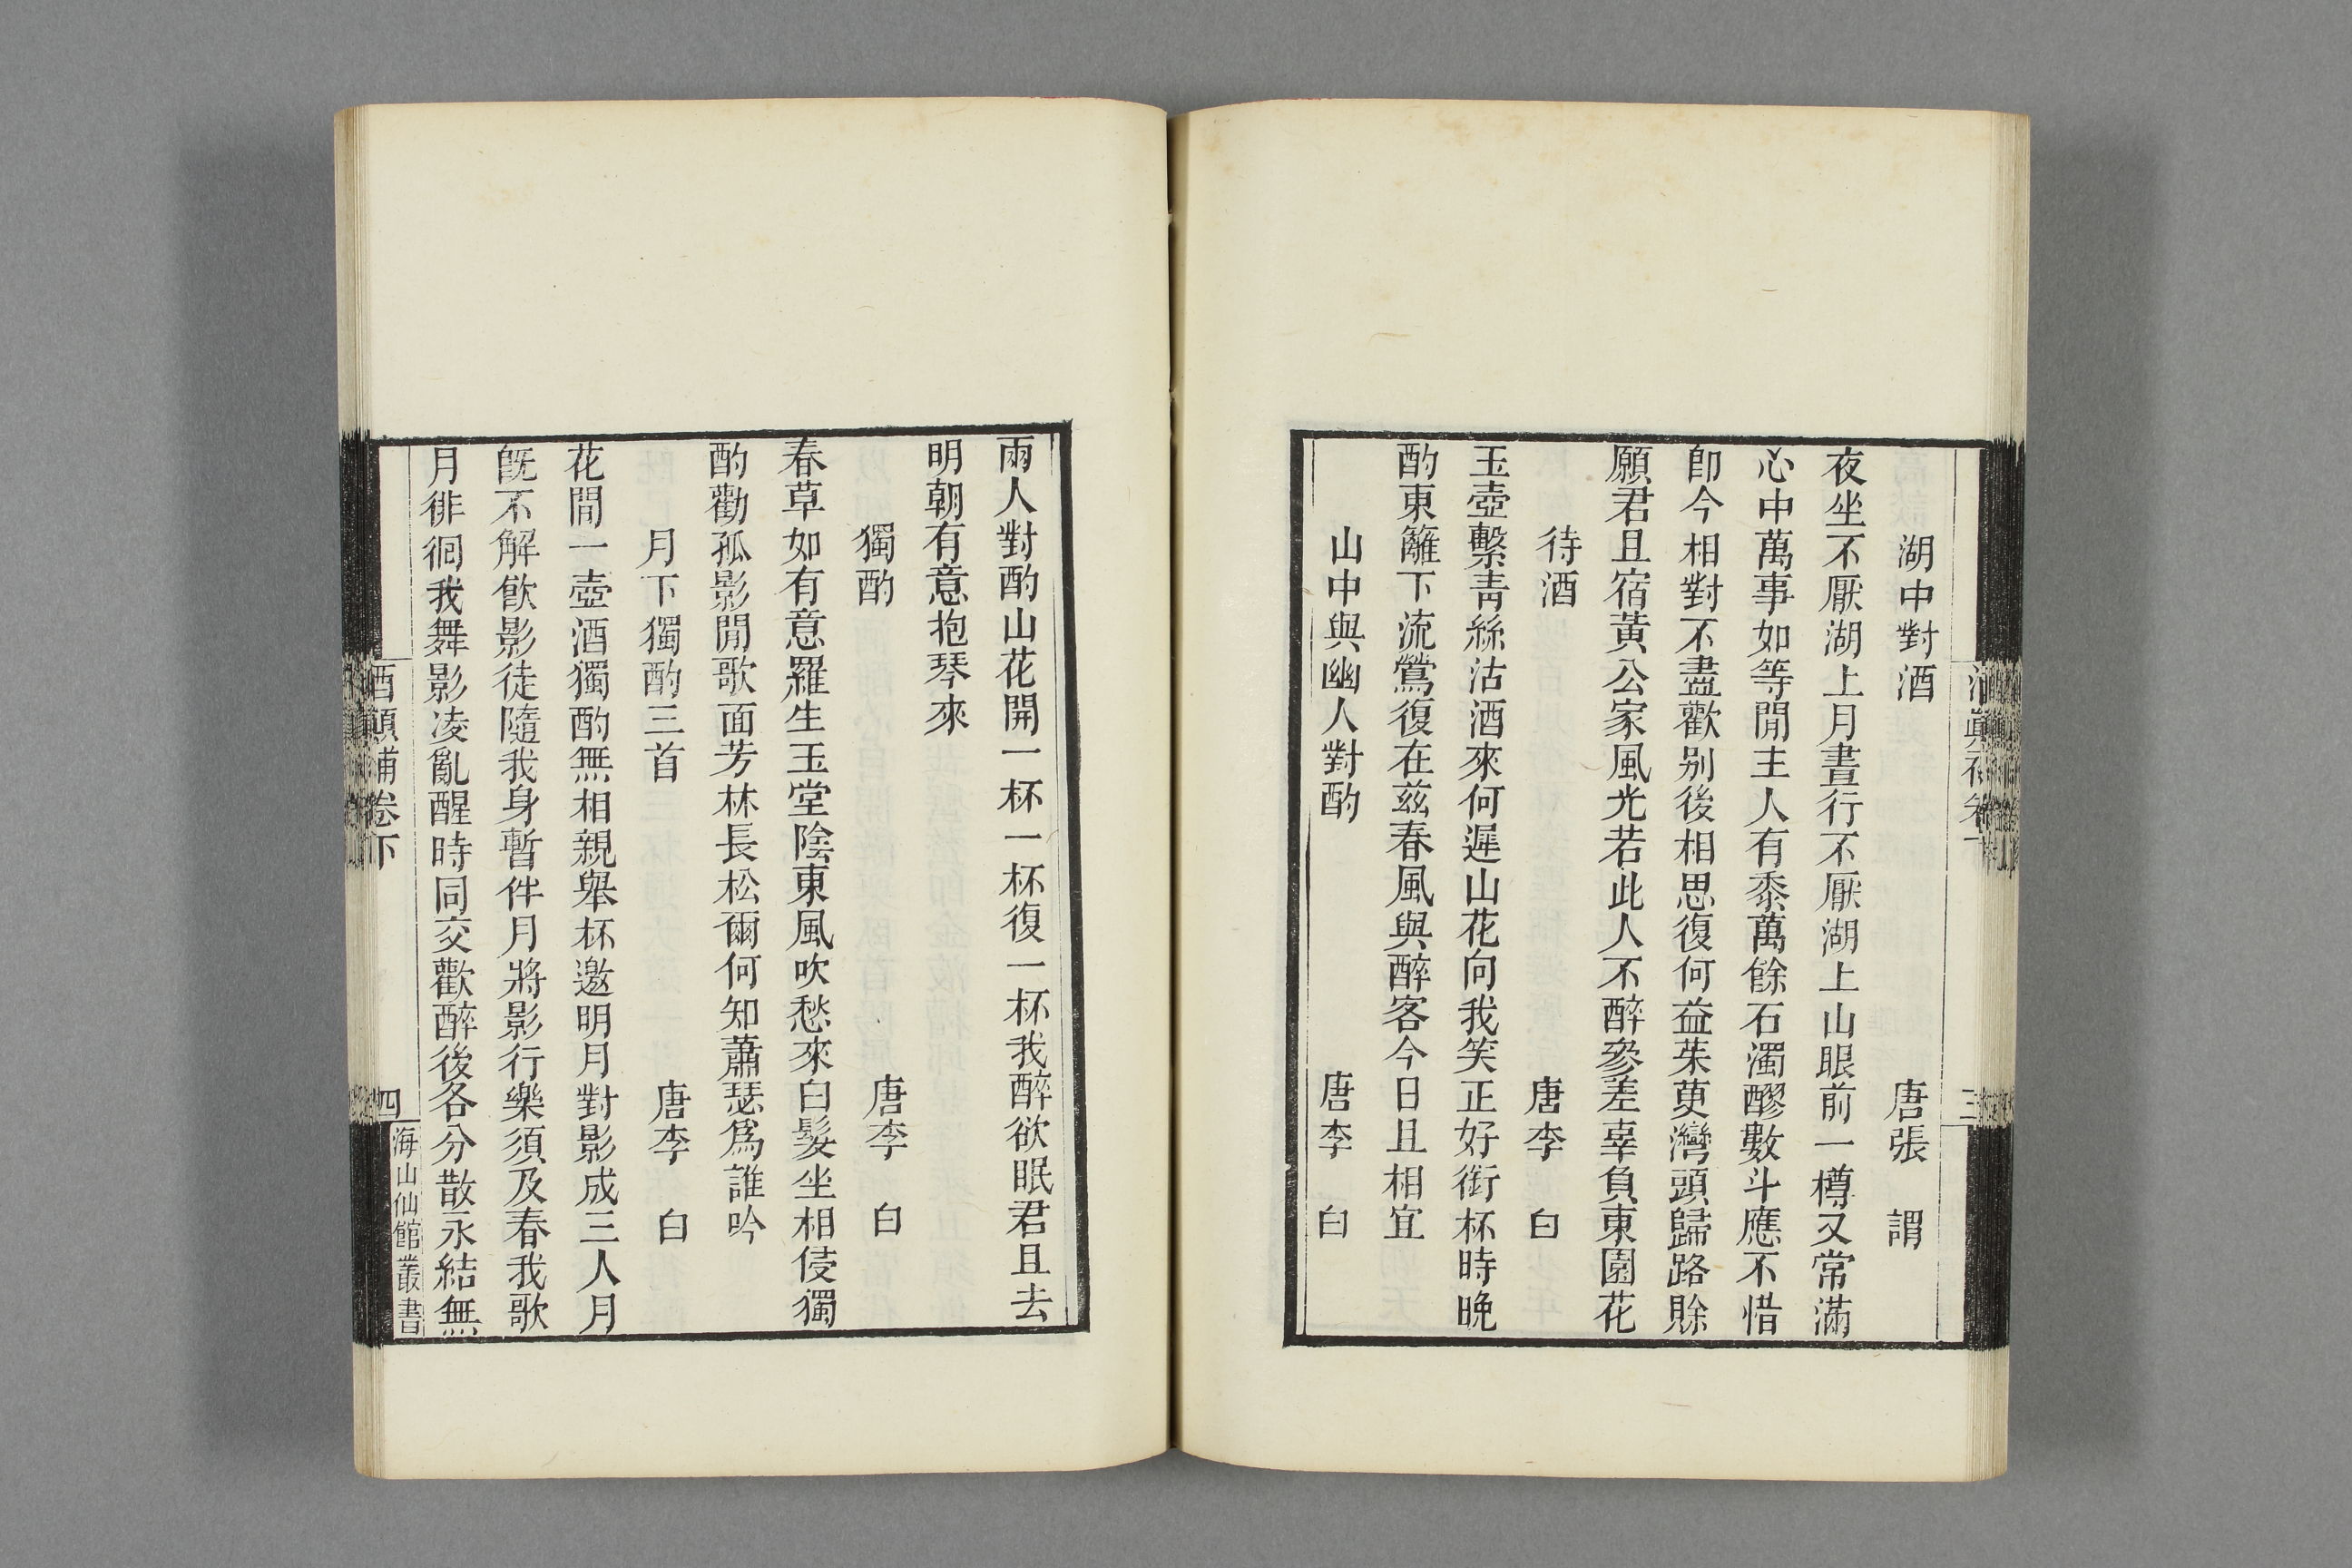 湖中對酒　唐張　謂
夜坐不厭湖上月晝行不厭湖上山眼前一樽又常滿
心中萬事如等閒主人有黍萬餘石濁醪數斗應不惜
卽今相對不盡歡别後相思復何益茱萸灣頭歸路賖
願君且宿黃公家風光若此人不醉參差辜負東園花
待酒　唐李　白
玉壺繫靑絲沽酒來何遲山花向我笑正好銜杯時晚
酌東籬下流鶯復在兹春風與醉客今日且相宜
山中與幽人對酌　唐李　白
兩人對酌山花開一杯一杯復一杯我醉欲眠君且去
明朝有意抱琴來
獨酌　唐李　白
春草如有意羅生玉堂陰東風吹愁來白髮坐相侵獨
酌勸孤影閒歌面芳林長松爾何知蕭瑟爲誰吟
月下獨酌三首　唐李　白
花間一壺酒獨酌無相親舉杯邀明月對影成三人月
旣不解飮影徒隨我身暫伴月將影行樂須及春我歌
月徘徊我舞影凌亂醒時同交歡醉後各分散永結無
酒顚補卷下
四
海山仙館叢書